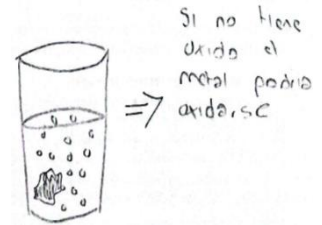 Si no tiene
oxido el
metal podria
oxidarse